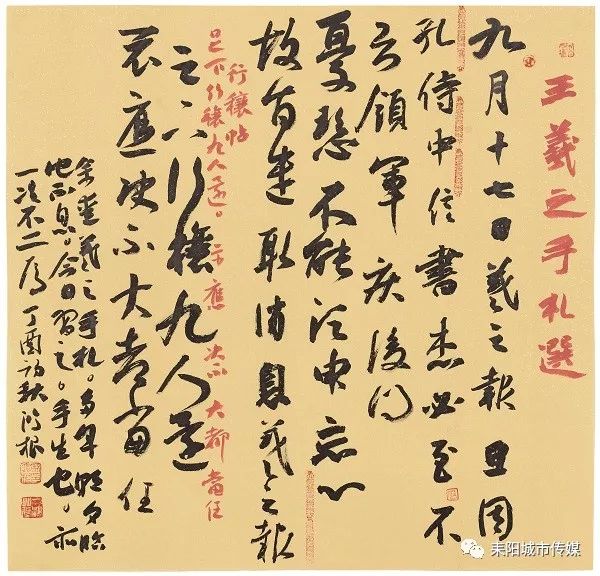 王羲之手札選
九月十七日羲之報且因
孔侍中信書想必至不
知領軍疾後問
憂懸不能須臾忘心
故旨遣取消息羲之報
行穰帖
足下行穰九人還。示應決不大都當任
足下行穰九人還
示應決不大都當任
余愛羲之手札。多年朝夕臨
池不息。今日習之。手生也。亦
一次不二為丁酉初秋
耒阳城市传媒